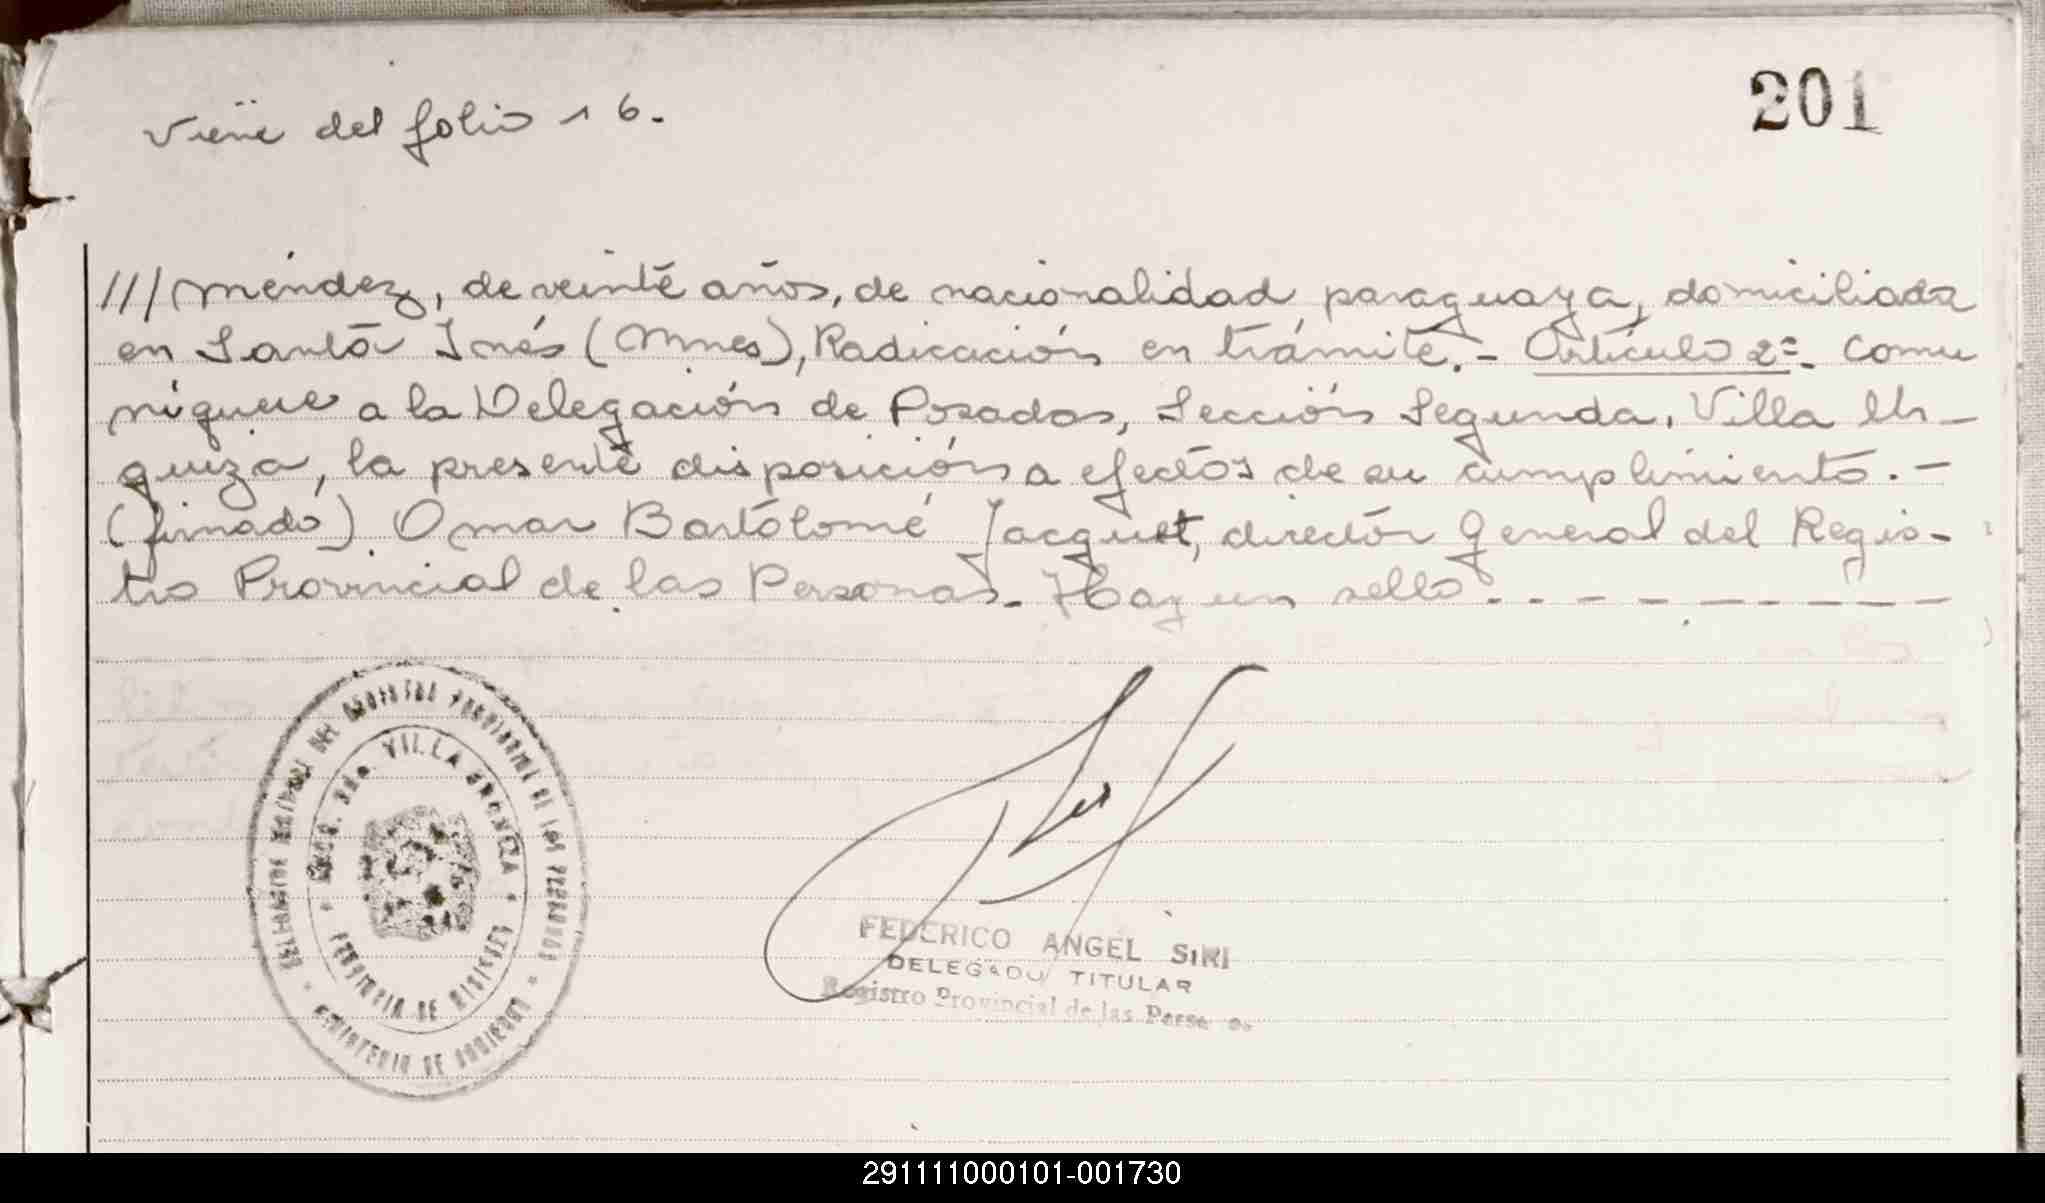 Viene del folio 16.
201
///Méndez, de veinte años, de nacionalidad paraguaya, domiciliada
en Santa Inés (Mnes), Radicación en trámite.- Artículo 2º.- Comu
niquese a la Delegación de Posadas, Sección Segunda, Villa Ur-
quiza, la presente disposición a efectos de su cumplimiento.-
(firmado). Omar Bartolomé Jacquet, director General del Regis-
tro Provincial de las Personas.- Hay un sello.- - - - - - - - -
DEL REGISTRO PROVINCIAL DE LAS PERSONAS
SECC. 2da. VILLA URQUIZA
PROVINCIA DE MISIONES
MINISTERIO DE GOBIERNO
FEDERICO ANGEL SIRI
DELEGADO TITULAR
Registro Provincial de las Perso as
291111000101-001730